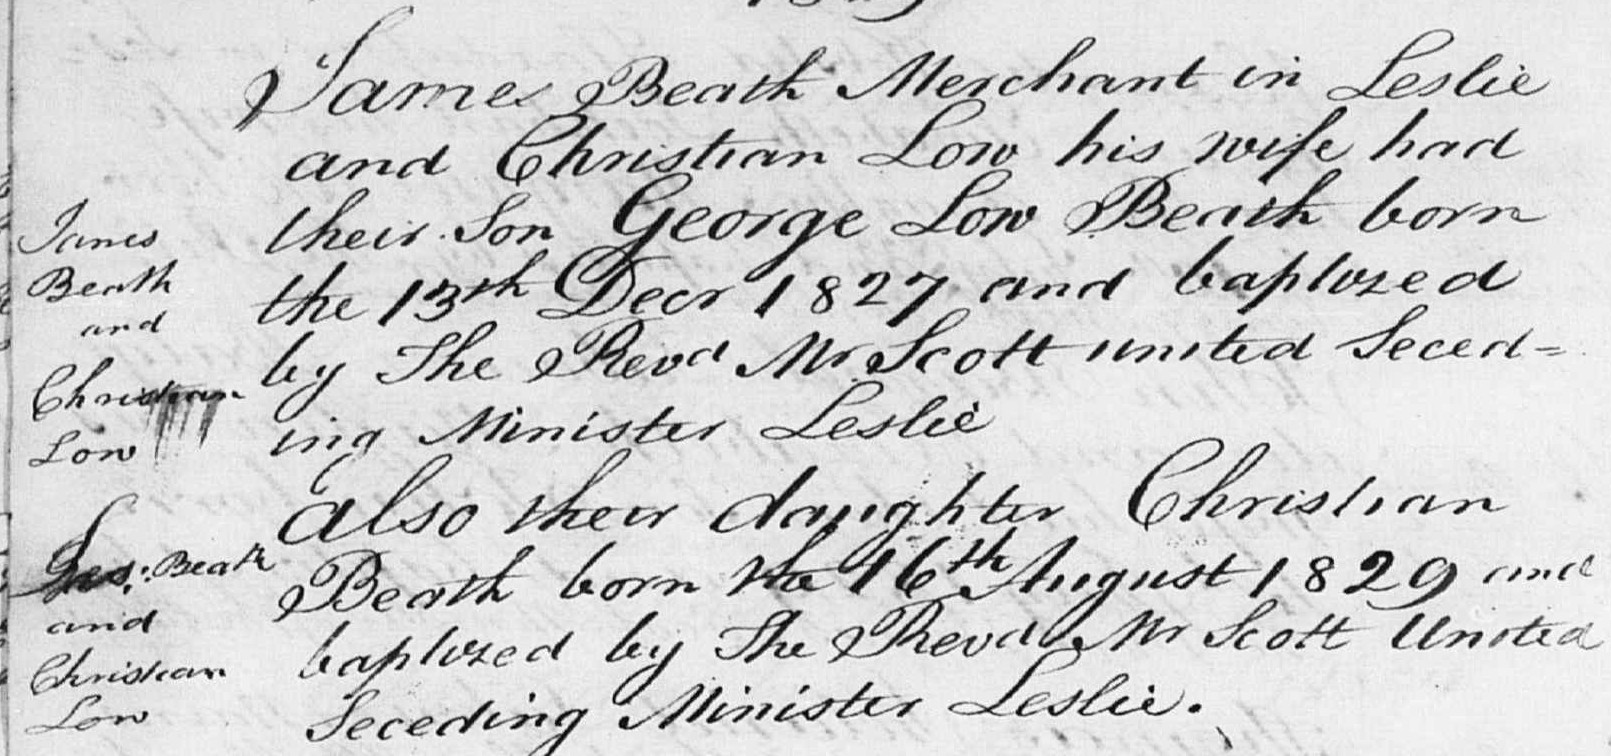 James Beath Merchant in Leslie
and Christian Low his wife had
their Son George Low Beath born
the 13th Decr 1827 and baptized
by The Revd Mr Scott united Seced=
ing Minister Leslie
also their daughter Christian
Beath born the 16th August 1829 and
baptized by The Revd Mr Scott United
Seceding Minister Leslie.
James
Beath
and
Christian
Low
Beath
and
Christian
Low